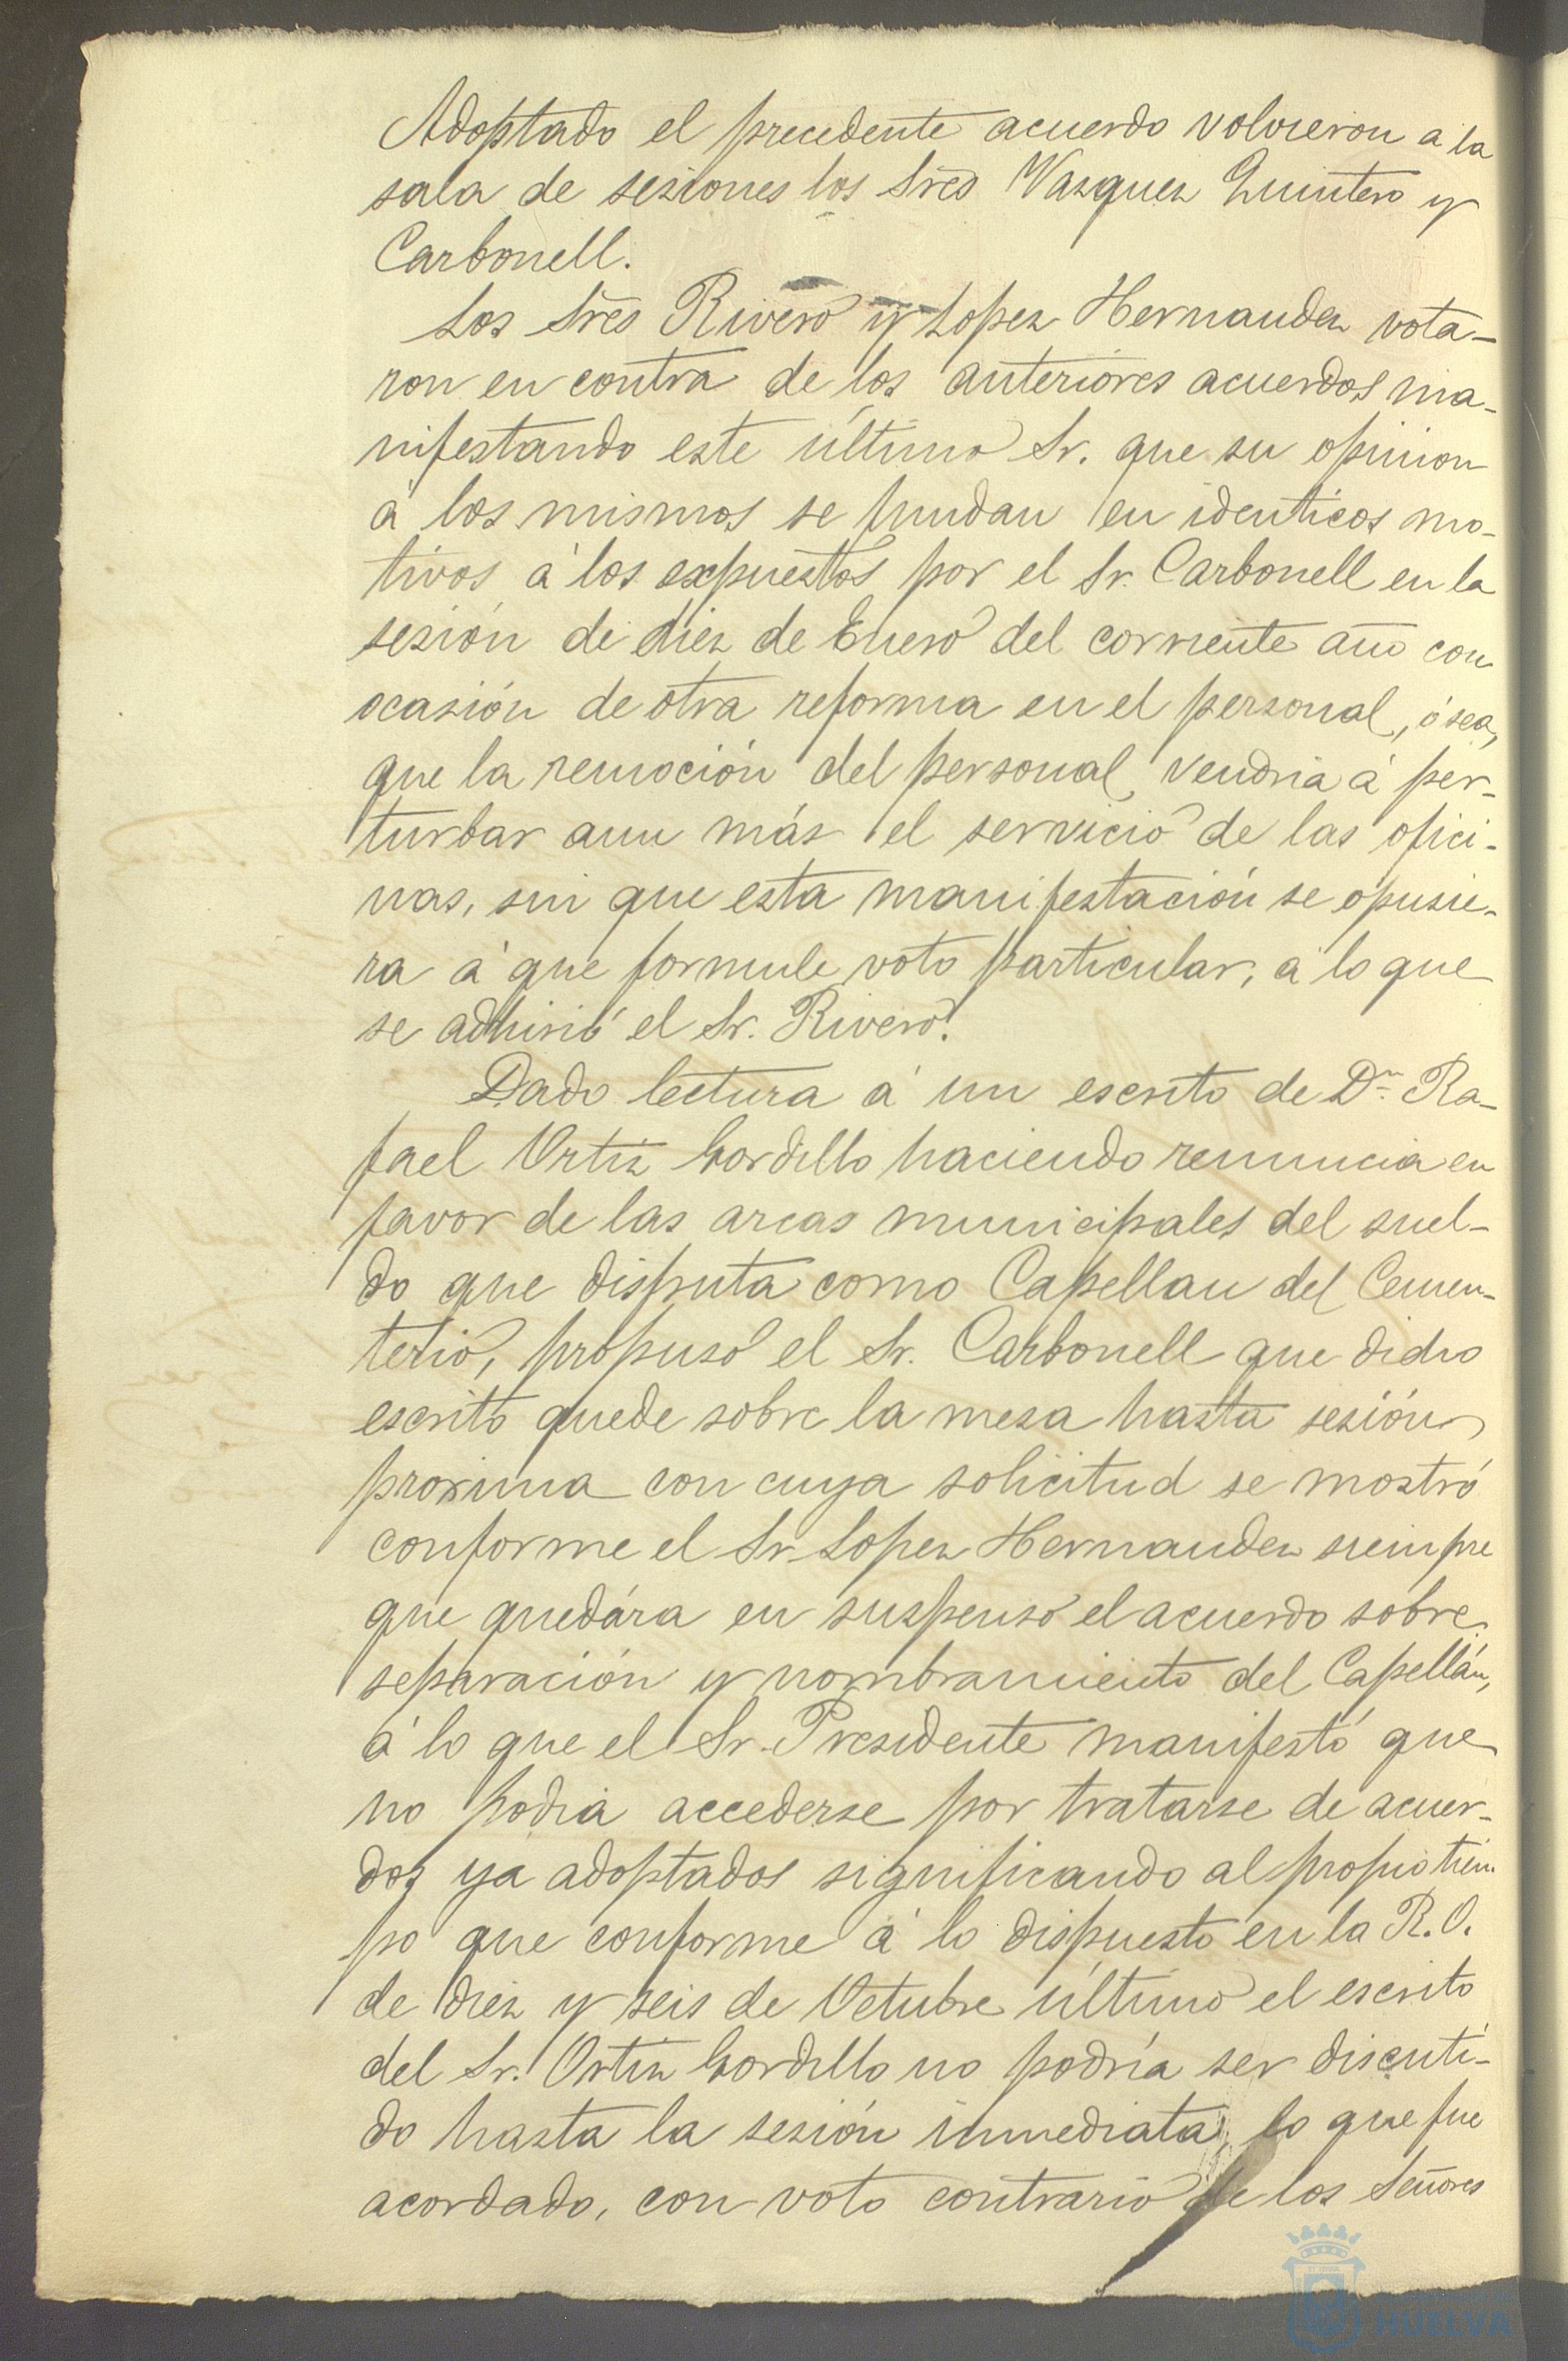 Adoptado el precedente acuerdo volvieron a la
sala de sesiones los Sres Vazquez Quintero y
Carbonell.
Los Sres Rivero y Lopez Hernandez vota-
ron en contra de los anteriores acuerdos ma-
nifestando este último Sr. que su opinion
á los mismos se fundan en identicos mo-
tivos á los expuestos por el Sr. Carbonell en la
sesión de diez de Enero del corriente año con
ocasión de otra reforma en el personal, ó sea,
que la remoción del personal vendria á per-
turbar aun más el servicio de las ofici-
nas, sin que esta manifestación se opusie-
ra á que formule voto particular, a lo que
se adhirió el Sr. Rivero.
Dado lectura á un escrito de Dn. Ra-
fael Ortiz Gordillo haciendo renuncia en
favor de las arcas municipales del suel-
do que disfruta como Capellan del Cemen-
terio, propuso el Sr. Carbonell que dicho
escrito quede sobre la mesa hasta sesión
proxima con cuya solicitud se mostró
conforme el Sr. Lopez Hernandez siempre
que quedára en suspenso el acuerdo sobre
separación y nombramiento del Capellán,
á lo que el Sr. Presidente manifestó que
no podia accederse por tratarse de acuer-
dos ya adoptados significando al propio tiem
po que conforme á lo dispuesto en la R.O.
de diez y seis de Octubre último el escrito
del Sr. Ortiz Gordillo no podría ser discuti-
do hasta la sesión inmediata, lo que fue
acordado, con voto contrario de los Señores
HUELVA